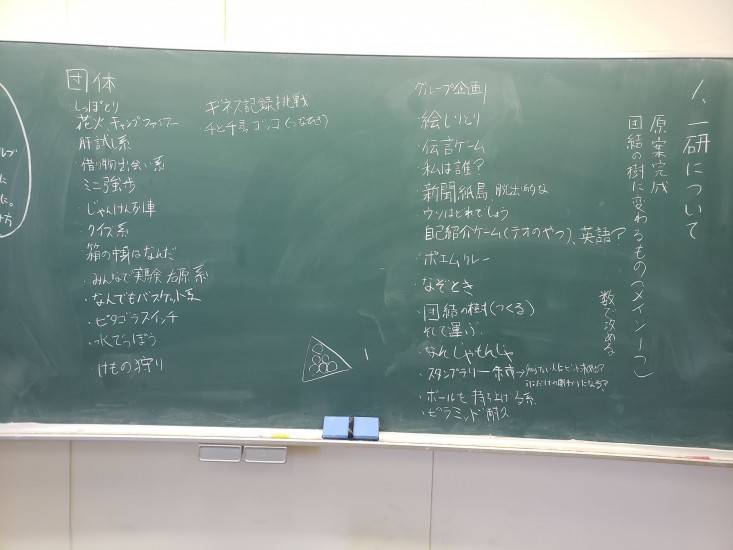 1、一研について
原案完成
団結の樹に変わるもの(メイン1つ)
数で攻める
グループ企画
・絵しりとり
・伝言ゲーム
・私は誰?
・新聞紙島 脱出的な
ウソはどれでしょう
自己紹介ゲーム(テオのやつ)、英語?
・ポエムリレー
・なぞとき
・団結の樹(つくる)
そして運ぶ
・なんじゃもんじゃ
・スタンプラリー
・ボールを持ち上げる系
・ピラミッド耐久
団体
・しっぽとり
花火、キャンプファイアー
肝試し系
・借り物出会い系
・ミニ強歩
・じゃんけん列車
・クイズ系
箱の中身はなんだ
・みんなで実験 右原系
・なんでもバスケット系
・ピタゴラスイッチ
・水でっぽう
けもの狩り
・ギネス記録挑戦